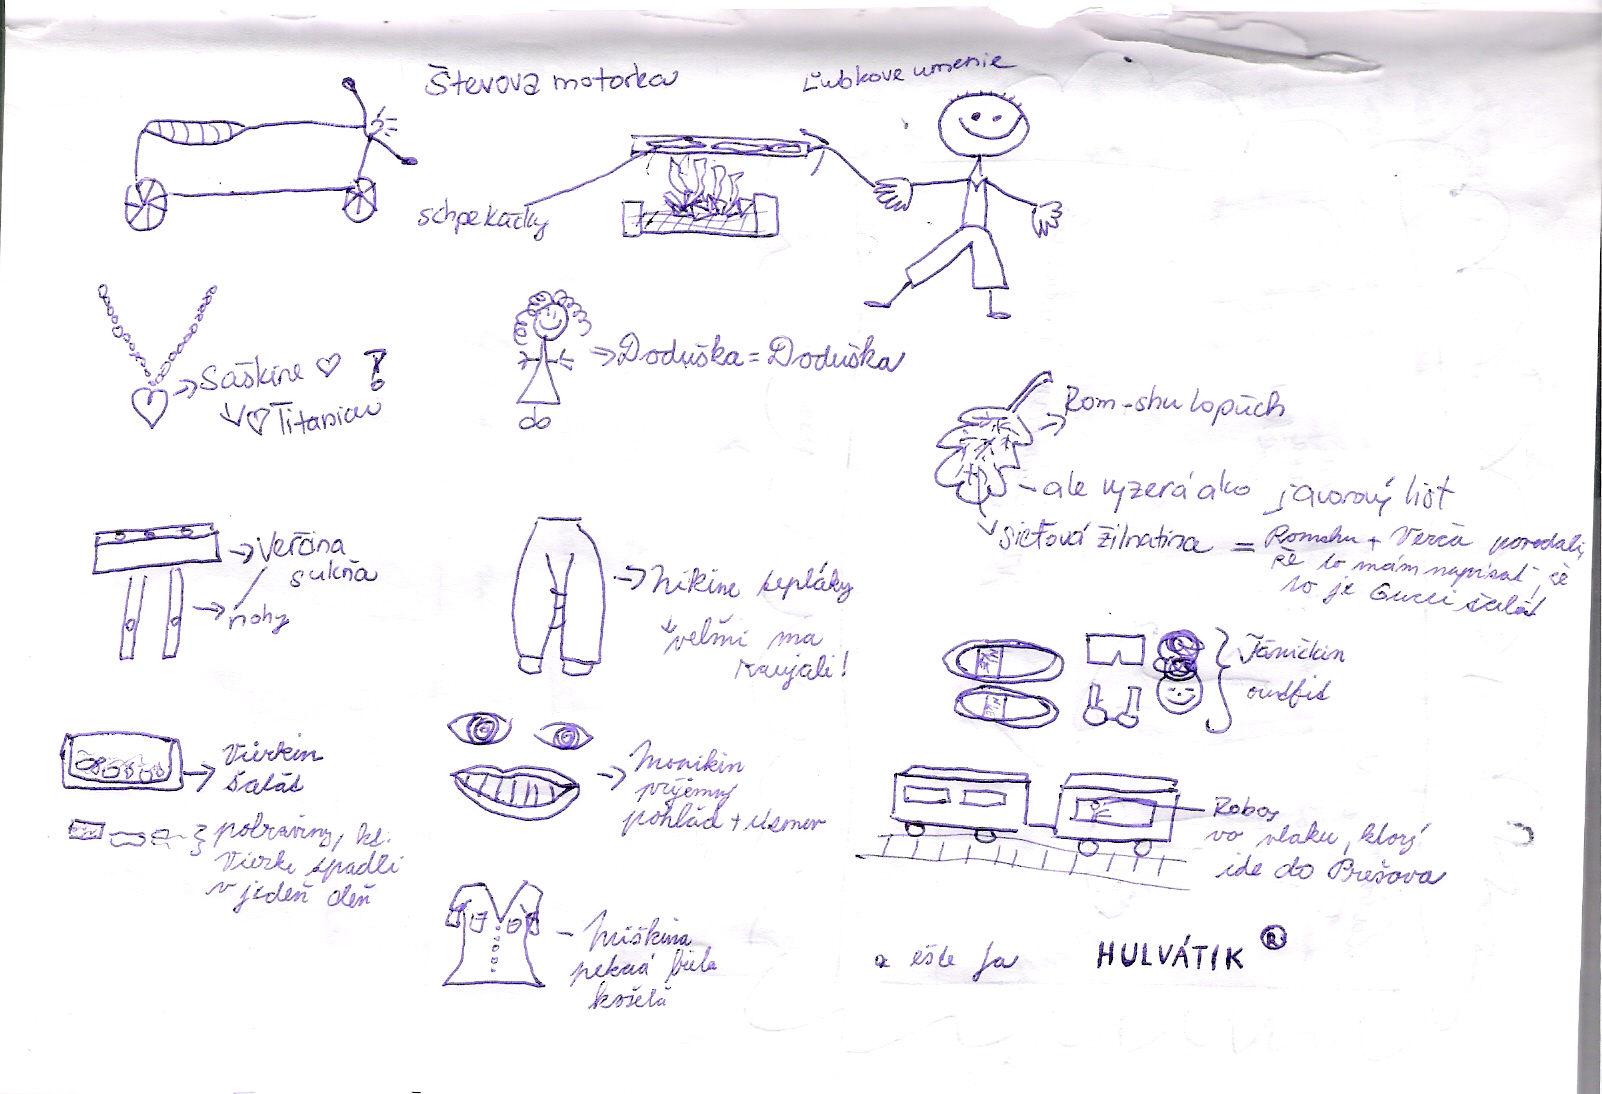 Števova motorka
Ľubkove umenie
schpekačky
Saškine ♡ ?
♡ Titanicu
Doduška = Doduška
Rom-shu lopúch
- ale vyzerá ako javorový list
sieťová žilnatina = Romshu + Verča povedali,
že to mám napísať, že
to je Gucci šalát
Verčina
sukňa
nohy
Nikine tepláky
veľmi ma
zaujali!
Janičkin
outfit
Vierkin
šalát
potraviny, kt.
Vierke spadli
v jedeň deň
Monikin
príjemný
pohľad + úsmev
Robos
vo vlaku, ktorý
ide do Prešova
- Miškina
pekná biela
košeľa
a ešte ja HULVÁTIK ®